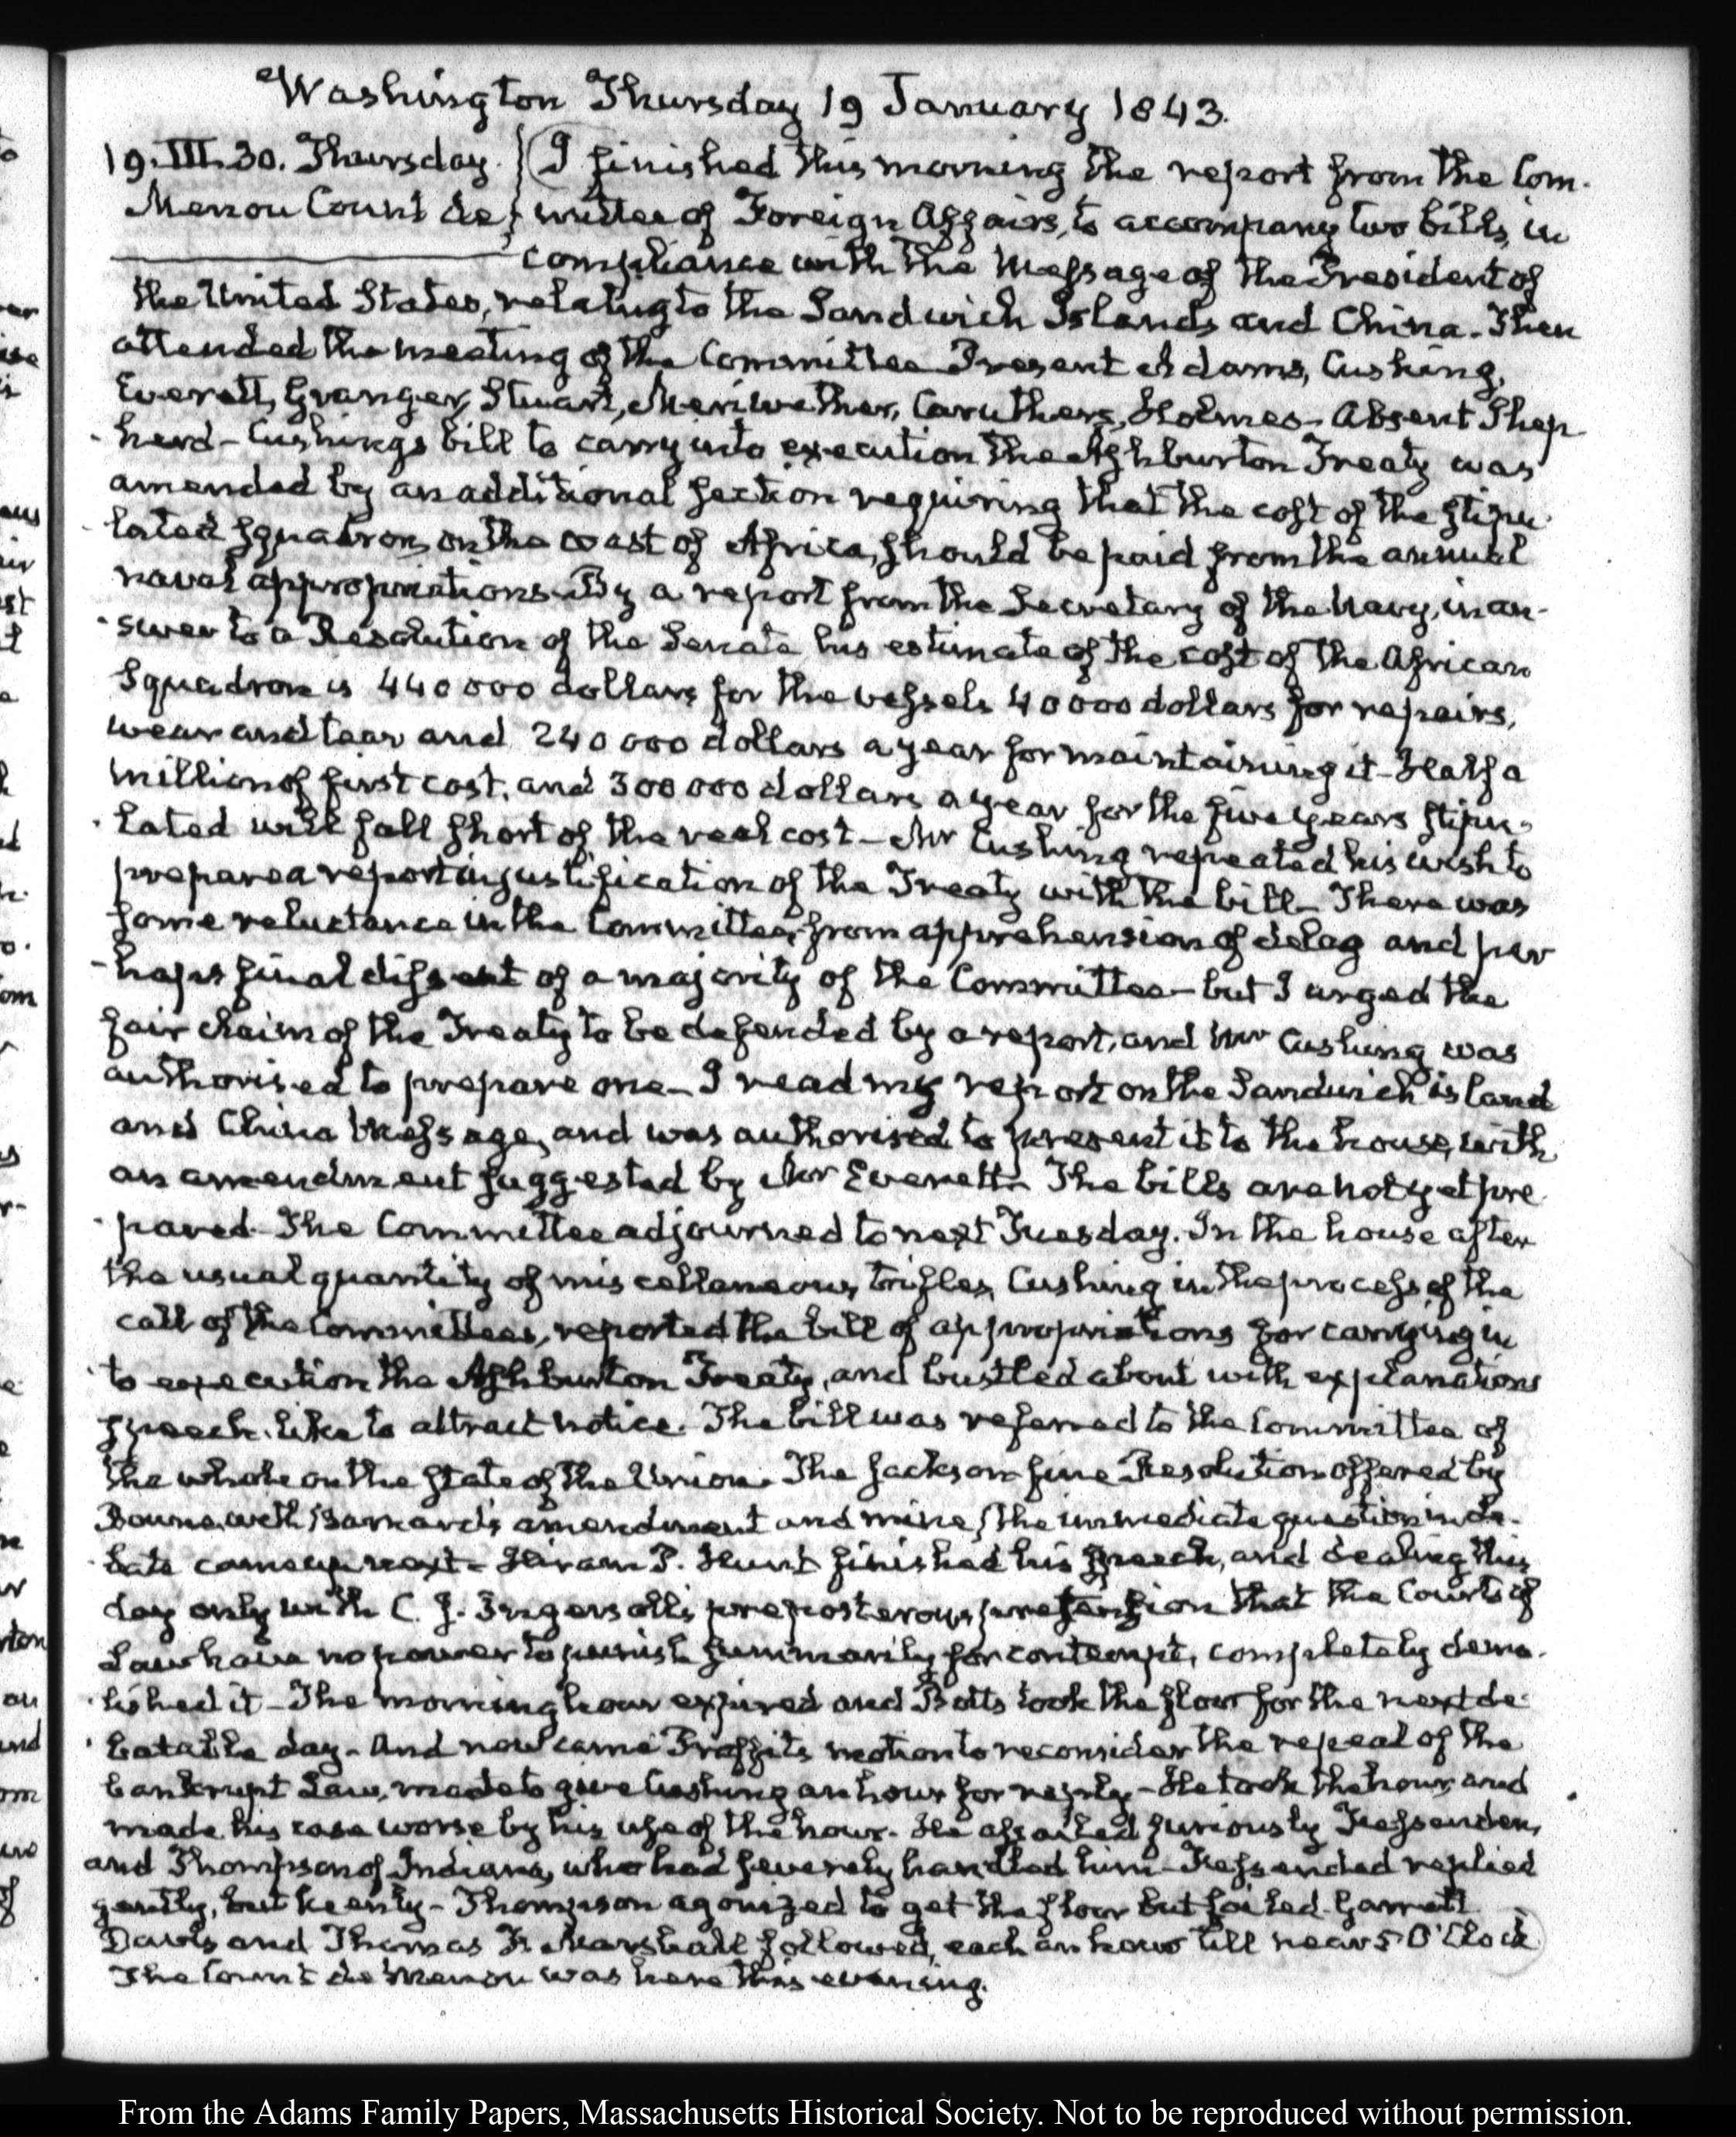 Washington Thursday 19 January 1843.
19. III. 30. Thursday. I finished this morning the report from the Com-
Menou Count de mittee of Foreign Affairs, to accompany two bills, in
compliance with the Message of the President of
the United States, relating to the Sandwich Islands and China. Then
attended the meeting of the Committee Present Adams, Cushing,
Everett, Granger, Stuart, Meriwether, Caruthers, Holmes - Absent Shep-
-herd - Cushings bill to carry into execution the Ashburton Treaty was
amended by an additional section requiring that the cost of the stipu-
lated squadron on the coast of Africa, should be paid from the annual
naval appropriations. By a report from the Secretary of the Navy, in an-
-swer to a Resolution of the Senate his estimate of the cost of the African
Squadron is 440 000 dollars for the vessels 40 000 dollars for repairs,
wear and tear and 240 000 dollars a year for maintaining it - Half a
million of first cost, and 300 000 dollars a year for the five years stipu-
-lated will fall short of the real cost - Mr Cushing repeated his wish to
prepare a report in justification of the Treaty with the bill - There was
some reluctance in the Committee, from apprehension of delay and per
-haps final dissent of a majority of the Committee - but I urged the
fair claim of the Treaty to be defended by a report, and Mr Cushing was
authorised to prepare one - I read my report on the Sandwich island
and China Message, and was authorised to present it to the house, with
an amendment suggested by Mr Everett. The bills are not yet pre
-pared. The Committee adjourned to next Tuesday. In the house after
the usual quantity of miscellaneous trifles, Cushing in the process of the
call of the Committees, reported the bill of appropriations for carrying in
-to execution the Ashburton Treaty, and bustled about with explanations
speech-like to attract notice. The bill was referred to the Committee of
the whole on the state of the Union. The Jackson fine Resolution offered by
Bowne, with Barnard's amendment and mine, the immediate question in de-
-bate came up next - Hiram P. Hunt finished his speech, and dealing this
day only with C. J. Ingersoll's preposterous pretension that the Courts of
Law have no power to punish summarily for contempt, completely demo-
-lished it - The morning hour expired and Botts took the floor for the next de-
-batable day - And now came Proffit's motion to reconsider the repeal of the
bankrupt Law, made to give Cushing an hour for reply - He took the hour, and
made his case worse by his use of the hour. He assailed furiously Fessenden,
and Thompson of Indiana, who had severely handled him - Fessended replied
gently, but keenly - Thompson agonized to get the floor but failed - Garrett
Davis and Thomas F. Marshall followed, each an hour till near 5 O'Clock
The Count de Menou was here this evening.
From the Adams Family Papers, Massachusetts Historical Society. Not to be reproduced without permission.